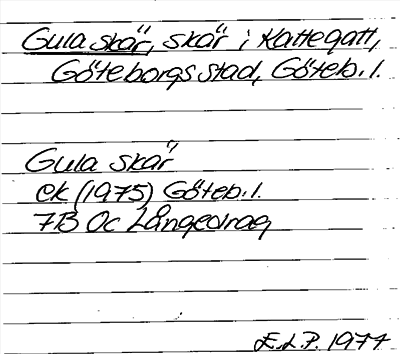 Gula skär, skär i Kattegatt,
Göteborgs stad, Göteb. l.
Gula skär
ek (1975) Göteb. l.
7B 0c Långedrag
E.L.P. 1977